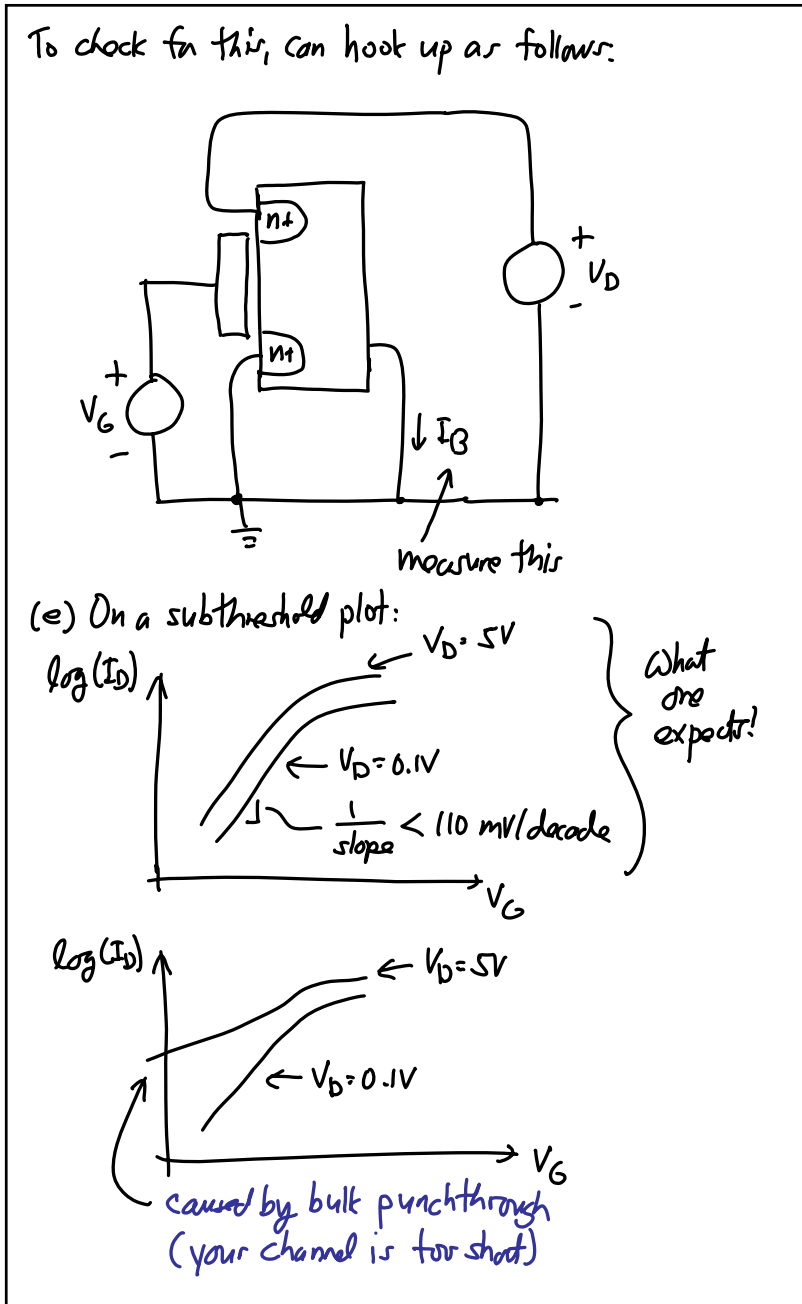 To check for this, can hook up as follows:
n+
+
V_D
-
n+
+
V_G
-
↓ I_B
measure this
(e) On a subthreshold plot:
log(I_D)
V_D = 5V
V_D = 0.1V
1/slope < 110 mV/decade
V_G
What
one
expects!
log(I_D)
V_D = 5V
V_D = 0.1V
V_G
caused by bulk punchthrough
(your channel is too short)